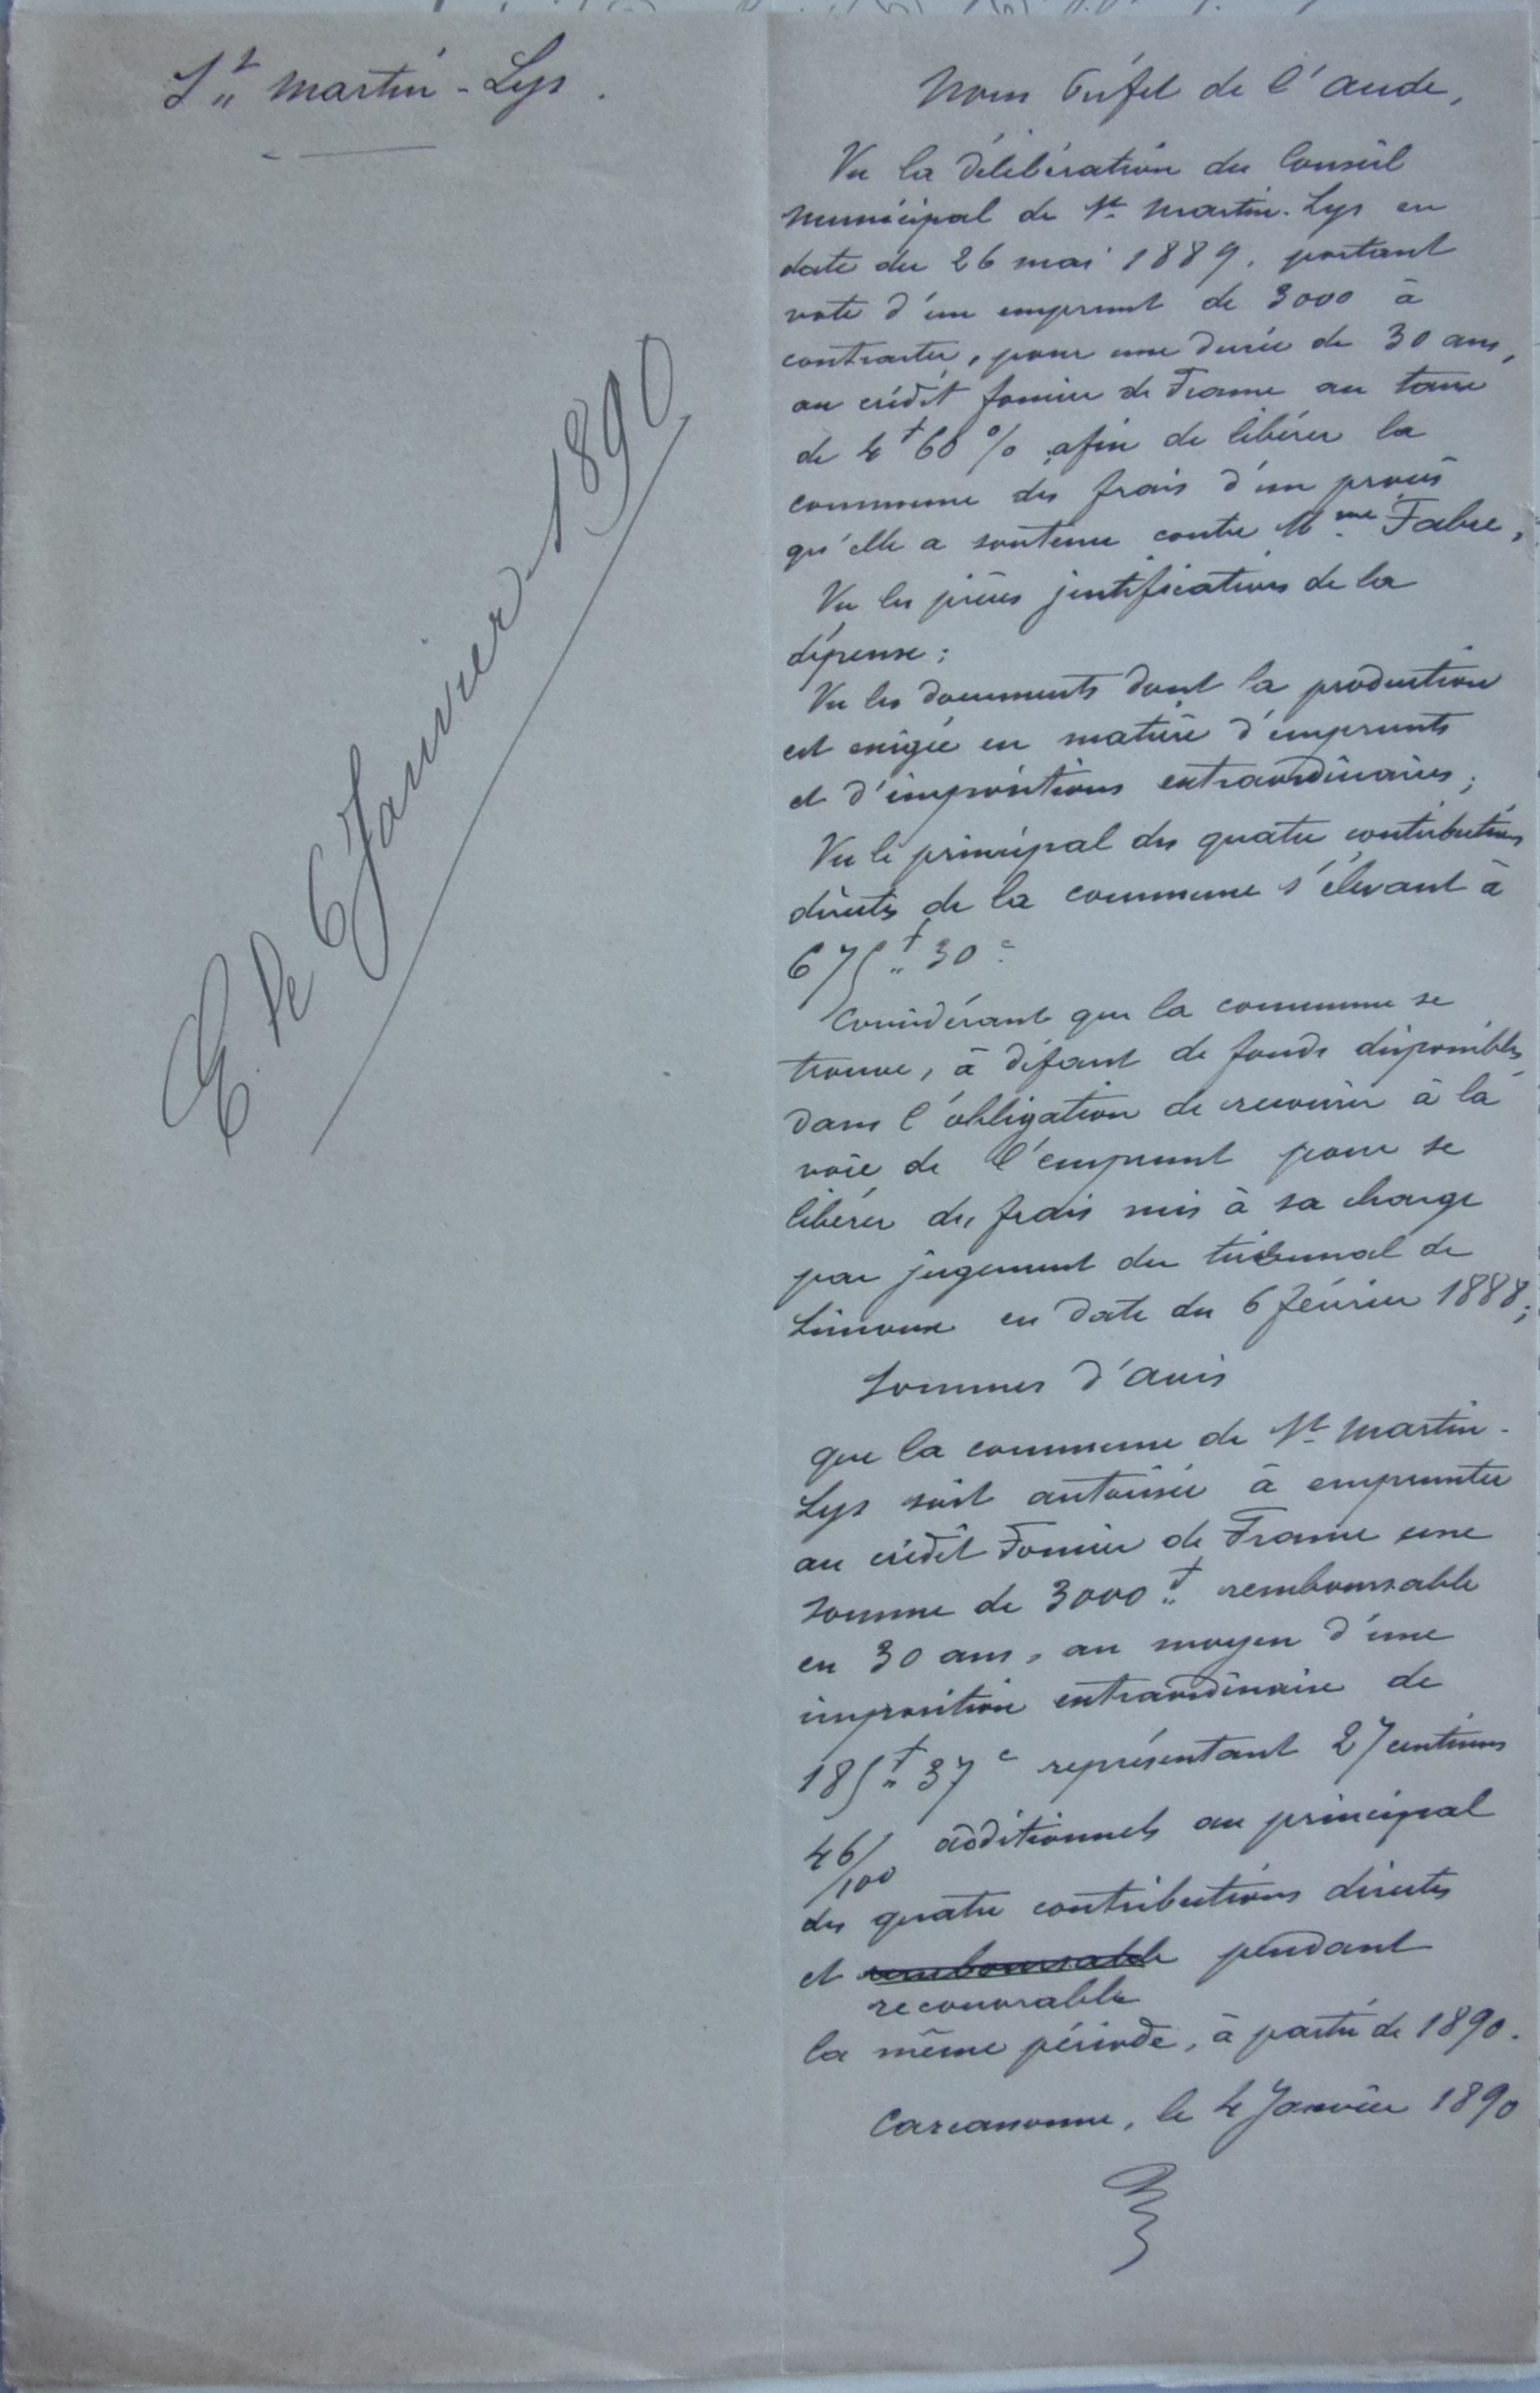 St Martin-Lys.
E. le 6 Janvier 1890
Nous Préfet de l'Aude,
Vu la délibération du Conseil
municipal de St Martin-Lys en
date du 26 mai 1889, portant
vote d'un emprunt de 3000 à
contracter, pour une durée de 30 ans,
au crédit foncier de France au taux
de 4f 60 % afin de libérer la
commune des frais d'un procès
qu'elle a soutenu contre Mme Fabre,
Vu les pièces justificatives de la
dépense;
Vu les documents dont la production
est exigée en matière d'emprunts
et d'impositions extraordinaires;
Vu le principal des quatre contributions
directes de la commune s'élevant à
675f 30c
Considérant que la commune se
trouve, à défaut de fonds disponibles,
dans l'obligation de recourir à la
voie de l'emprunt pour se
libérer des frais mis à sa charge
par jugement du tribunal de
Limoux en date du 6 février 1888;
Sommes d'avis
que la commune de St Martin-
Lys soit autorisée à emprunter
au crédit Foncier de France une
somme de 3000f remboursable
en 30 ans, au moyen d'une
imposition extraordinaire de
185f 37c représentant 27 centimes
46/100 additionnels au principal
des quatre contributions directes
et remboursable pendant
recouvrable
la même période, à partir de 1890.
Carcassonne, le 4 Janvier 1890